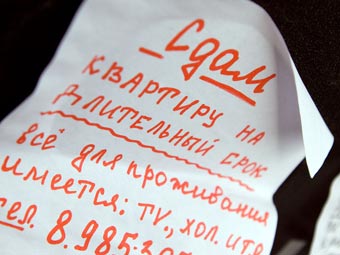 Сдам
КВАРТИРУ НА
ДЛИТЕЛЬНЫЙ СРОК
всё для проживания
имеется: TV., хол. ит.д
тел. 8.985.